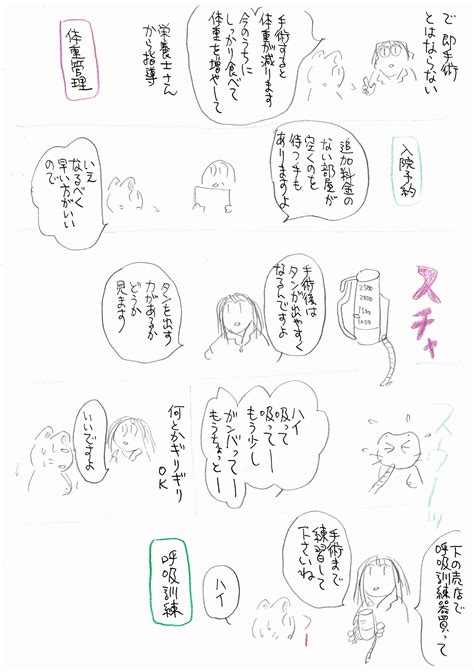 で 即手術
とはならない
手術すると
体重が減ります
今のうちに
しっかり食べて
体重を増やして
栄養士さん
から指導
体重管理
入院予約
追加料金の
ない部屋が
空くのを
待つ手も
ありますよ
いえ
なるべく
早い方がいい
ので
スチャ
2500
2000
1500
1000
手術後は
タンが出やすく
なるんですよ
タンを出す
力があるか
どうか
見ます
スウーッ
ハイ
吸って
吸ってー
もう少し
ガンバってー
もうちょっとー
何とかギリギリ
OK
いいですよ
下の売店で
呼吸訓練器買って
手術まで
練習して
下さいね
ハイ
呼吸訓練